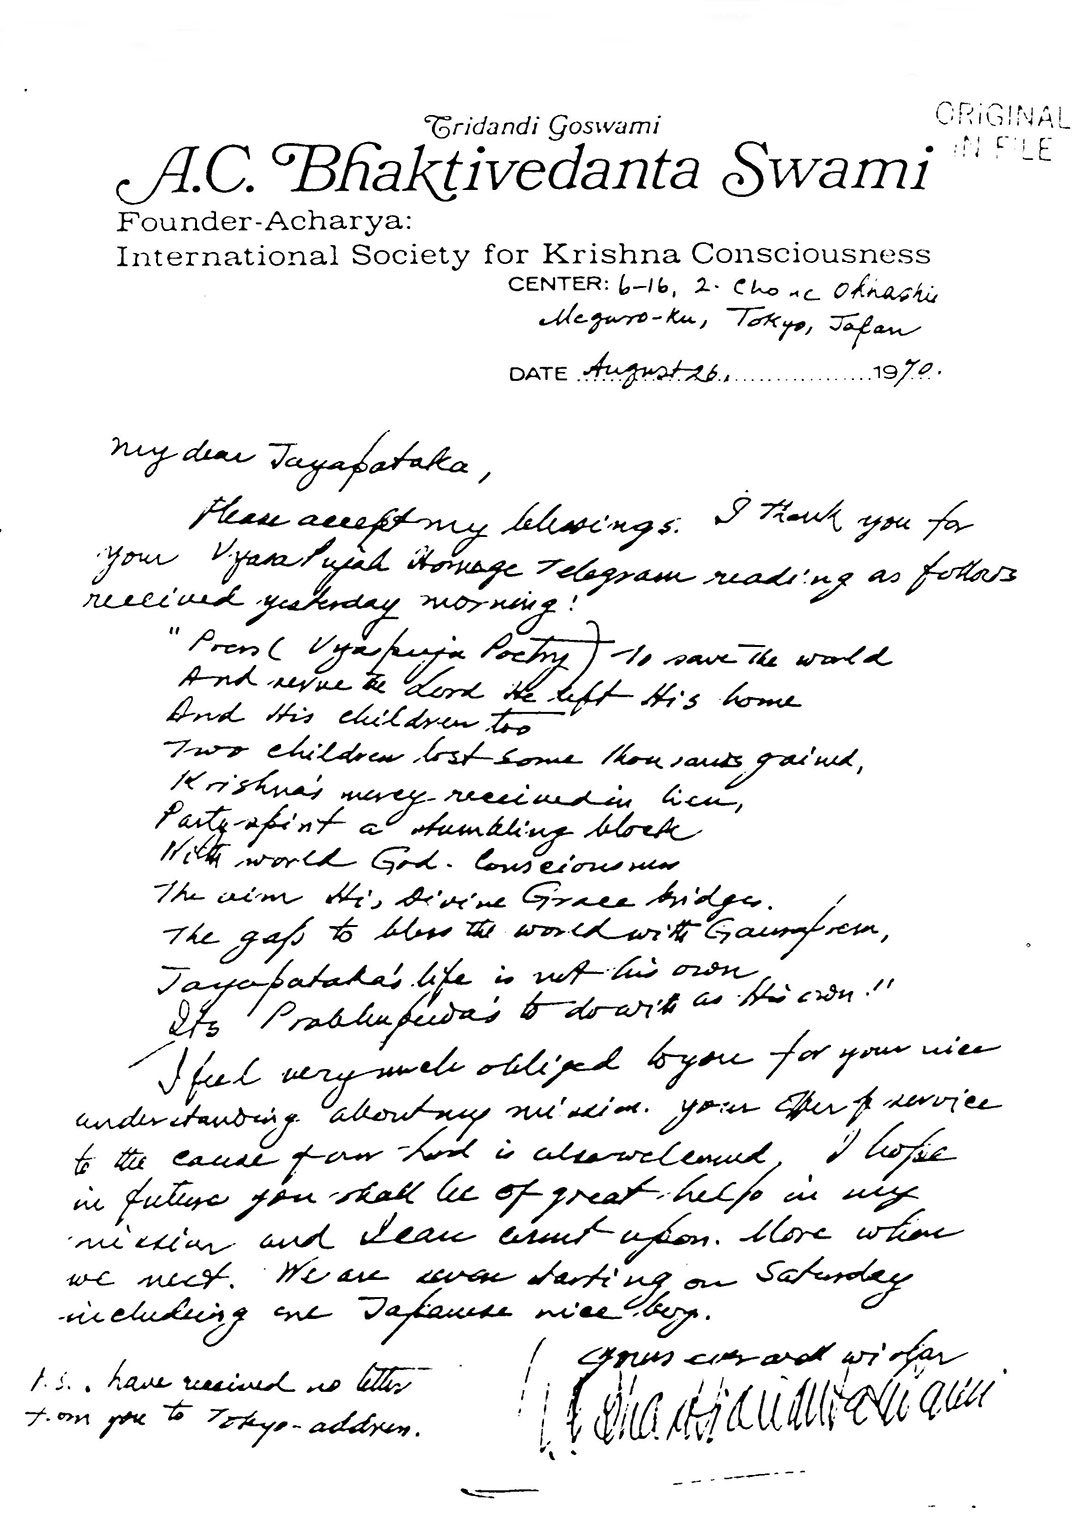 Tridandi Goswami
ORIGINAL
IN FILE
A.C. Bhaktivedanta Swami
Founder-Acharya:
International Society for Krishna Consciousness
CENTER: 6-16, 2. Chome Ohhashi
Meguro-Ku, Tokyo, Japan
DATE August 26, 1970.
My dear Jayapataka,
Please accept my blessings. I thank you for
your Vyasa Pujah Homage Telegram reading as follows
received yesterday morning:
"Poem ( Vyaspuja Poetry) To save the world
And serve the Lord He left His home
And His children too
Two children lost some thousands gained,
Krishna's mercy received in lieu,
Party-spirit a stumbling block
With world God-Consciousness
The aim His Divine Grace bridges.
The gaps to bless the world with Gaurprem,
Jayapataka's life is not his own
Its Prabhupada's to do with as His own!"
I feel very much obliged to you for your nice
understanding about my mission. your Offer of service
to the cause of our Lord is also welcomed, I hope
in future you shall be of great help in my
mission and I can count upon. More when
we meet. We are seven starting on Saturday
including one Japanese nice boy.
yours ever well wisher
P.S. I have received no letter
from you to Tokyo-address.
A.C. Bhaktivedanta Swami